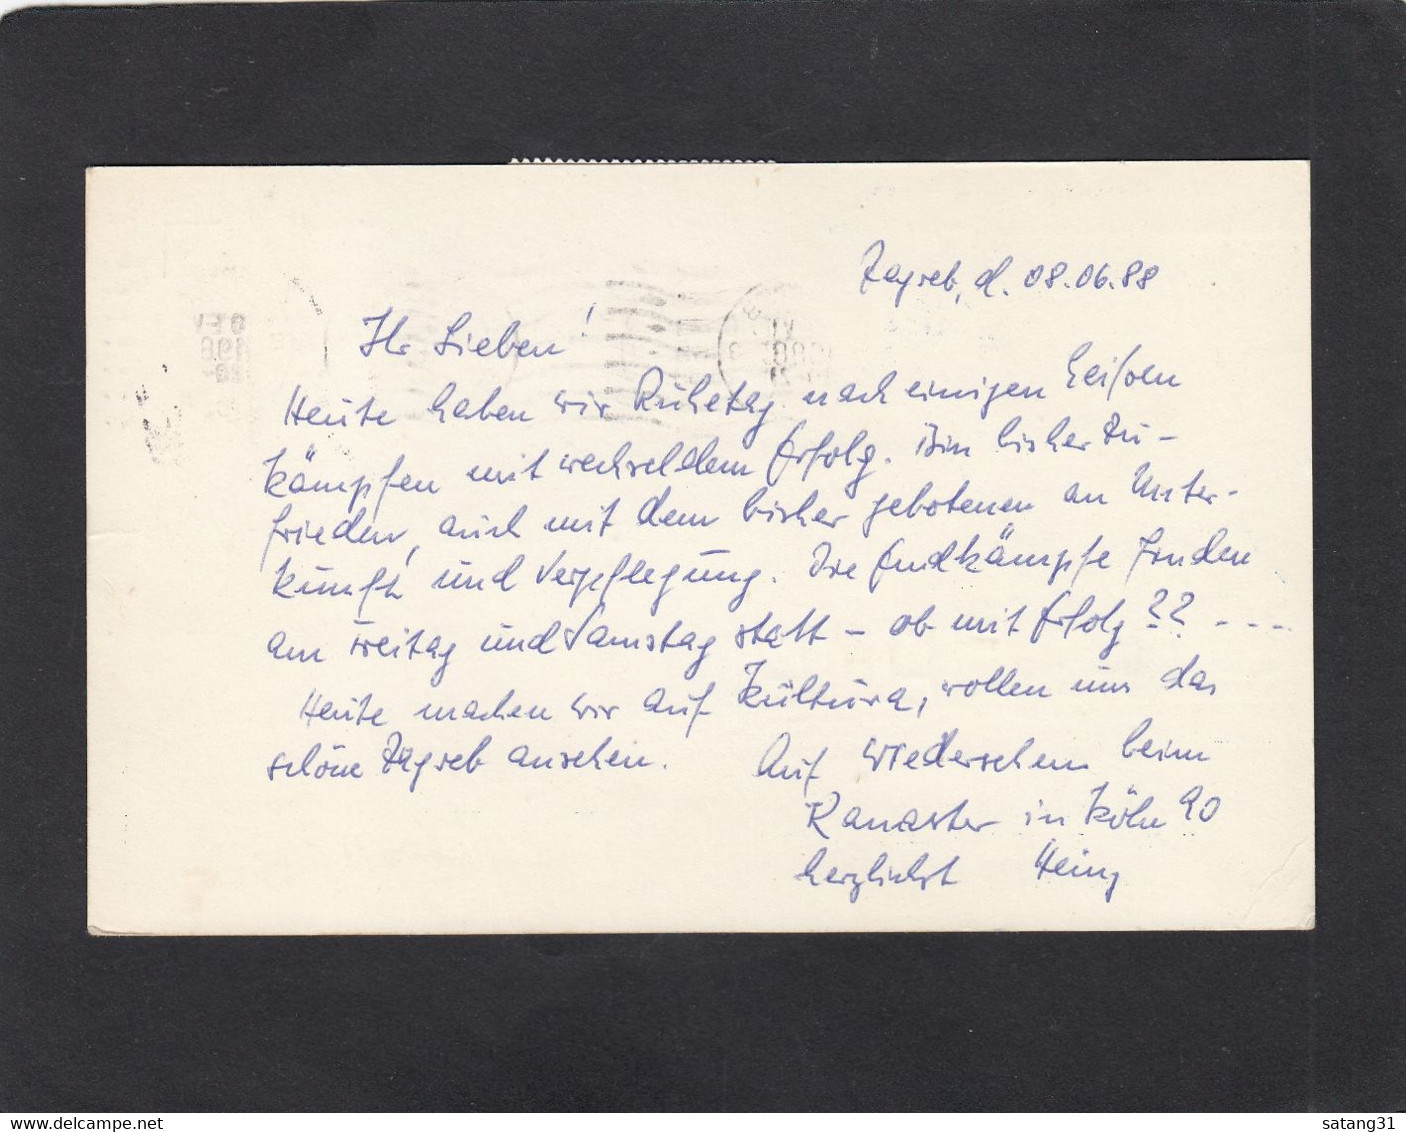 Zagreb, d. 08.06.88
Ihr Lieben!
Heute haben wir Ruhetag nach einigen heißen
Kämpfen mit wechselndem Erfolg. Bin bisher zu-
frieden, auch mit dem bisher gebotenen an Unter-
kunft und Verpflegung. Die Endkämpfe finden
am Freitag und Samstag statt – ob mit Erfolg?? ----
Heute machen wir auf Kultura, wollen uns das
schöne Zagreb ansehen.
Auf Wiedersehen beim
in Köln 90
herzlichst Heinz
satang31